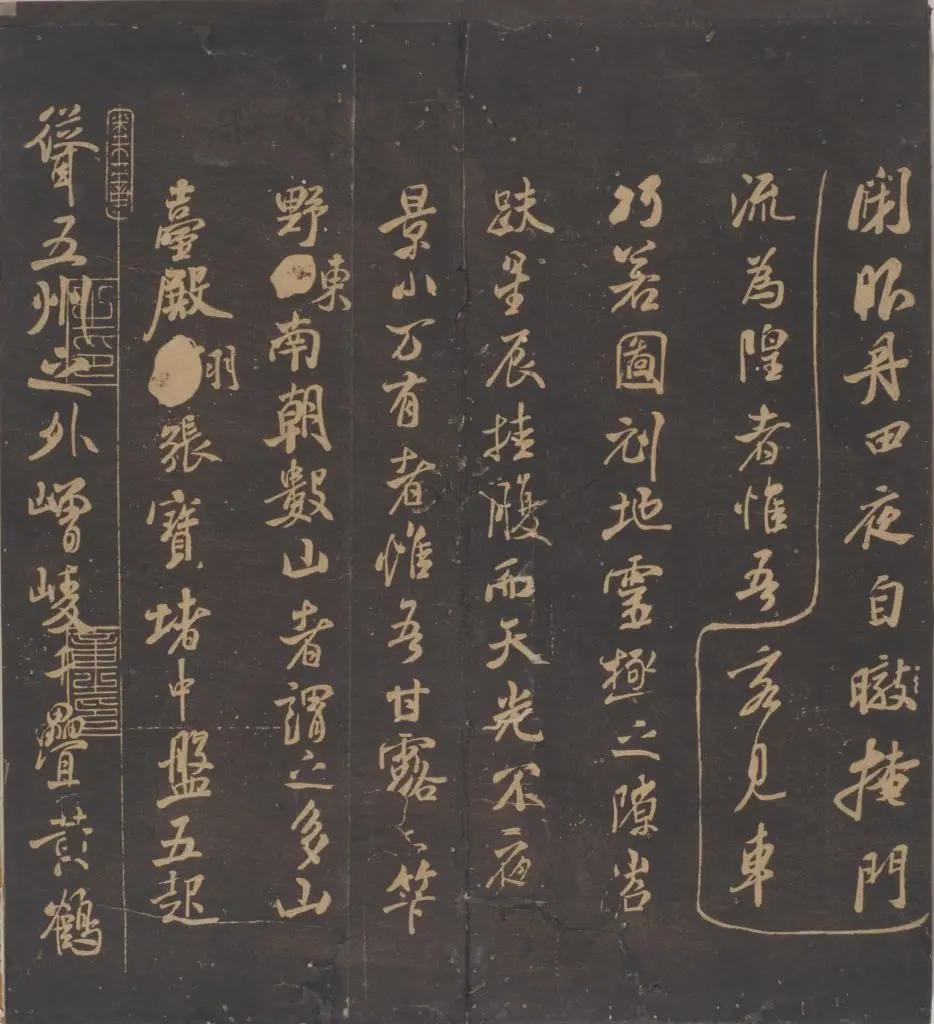 閉眼丹田夜自暾掩門
流為隍者惟吾客見車
巧若圖刻地靈極之隙岩
趺星辰挂腹而天光不夜
景小万有者惟吾甘露之笮
野東南朝數山者謂之多山
臺殿羽張寶堵中盤五起
聳五州之外嶒崚再疊黃鶴